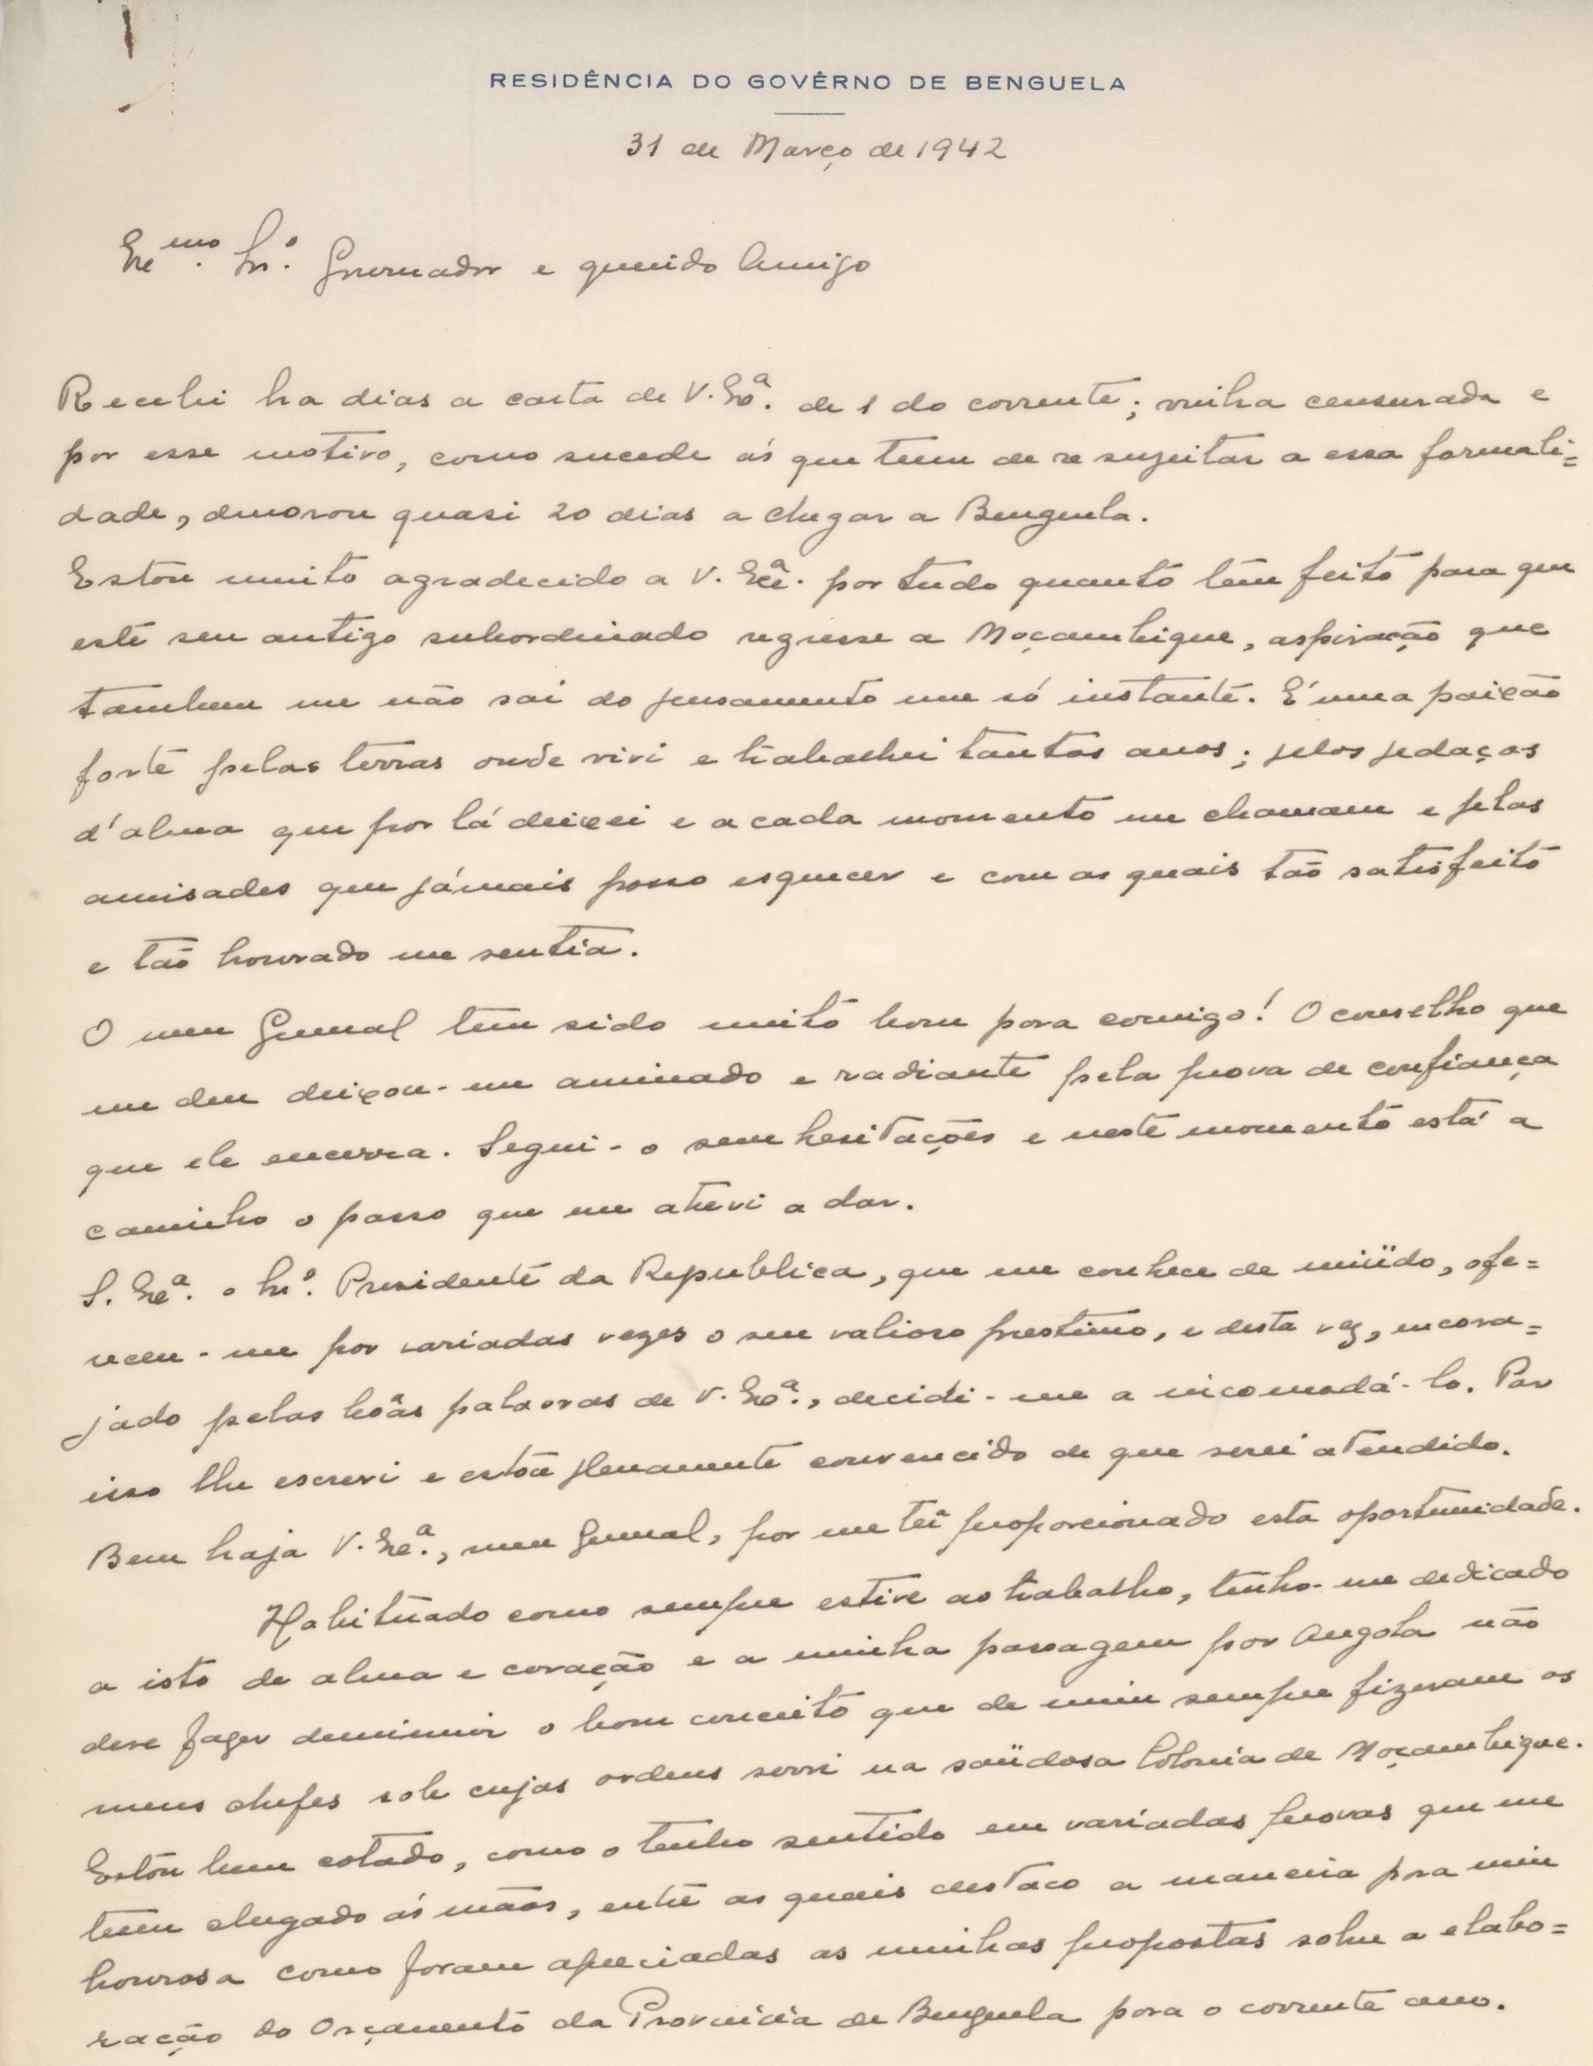 RESIDÊNCIA DO GOVÊRNO DE BENGUELA
31 de Março de 1942
Exmo. Snr. Governador e querido Amigo
Recebi ha dias a carta de V. Exa. de 1 do corrente; vinha censurada e
por esse motivo, como sucede ás que teem de se sugeitar a essa formali=
dade, demorou quasi 20 dias a chegar a Benguela.
Estou muito agradecido a V. Exa. por tudo quanto têm feito para que
este seu antigo subordinado regresse a Moçambique, aspiração que
tambem me não sai do pensamento um só instante. É uma paixão
forte pelas terras onde vivi e trabalhei tantos anos; pelos pedaços
d'alma que por lá deixei e a cada momento me chamam e pelas
amisades que jámais posso esquecer e com as quais tão satisfeito
e tão honrado me sentia.
O meu General tem sido muito bom para comigo! O conselho que
me deu deixou-me animado e radiante pela prova de confiança
que ele encerra. Segui-o sem hesitações e neste momento está a
caminho o passo que me atrevi a dar.
S. Exa. o Snr. Presidente da Republica, que me conhece de miüdo, ofe=
receu-me por variadas vezes o seu valioso prestimo, e desta vez, encora=
jado pelas bôas palavras de V. Exa., decidi-me a incomodá-lo. Por
isso lhe escrevi e estou plenamente convencido de que serei atendido.
Bem haja V. Exa., meu General, por me ter proporcionado esta oportunidade.
Habituado como sempre estive ao trabalho, tenho-me dedicado
a isto de alma e coração e a minha passagem por Angola não
deve fazer deminuir o bom conceito que de mim sempre fizeram os
meus chefes sob cujas ordens servi na saüdosa Colonia de Moçambique.
Estou bem cotado, como o tenho sentido em variadas provas que me
teem chegado ás mãos, entre as quais destaco a maneira pra mim
honrosa como foram apreciadas as minhas propostas sobre a elabo=
ração do Orçamento da Provincia de Benguela para o corrente ano.